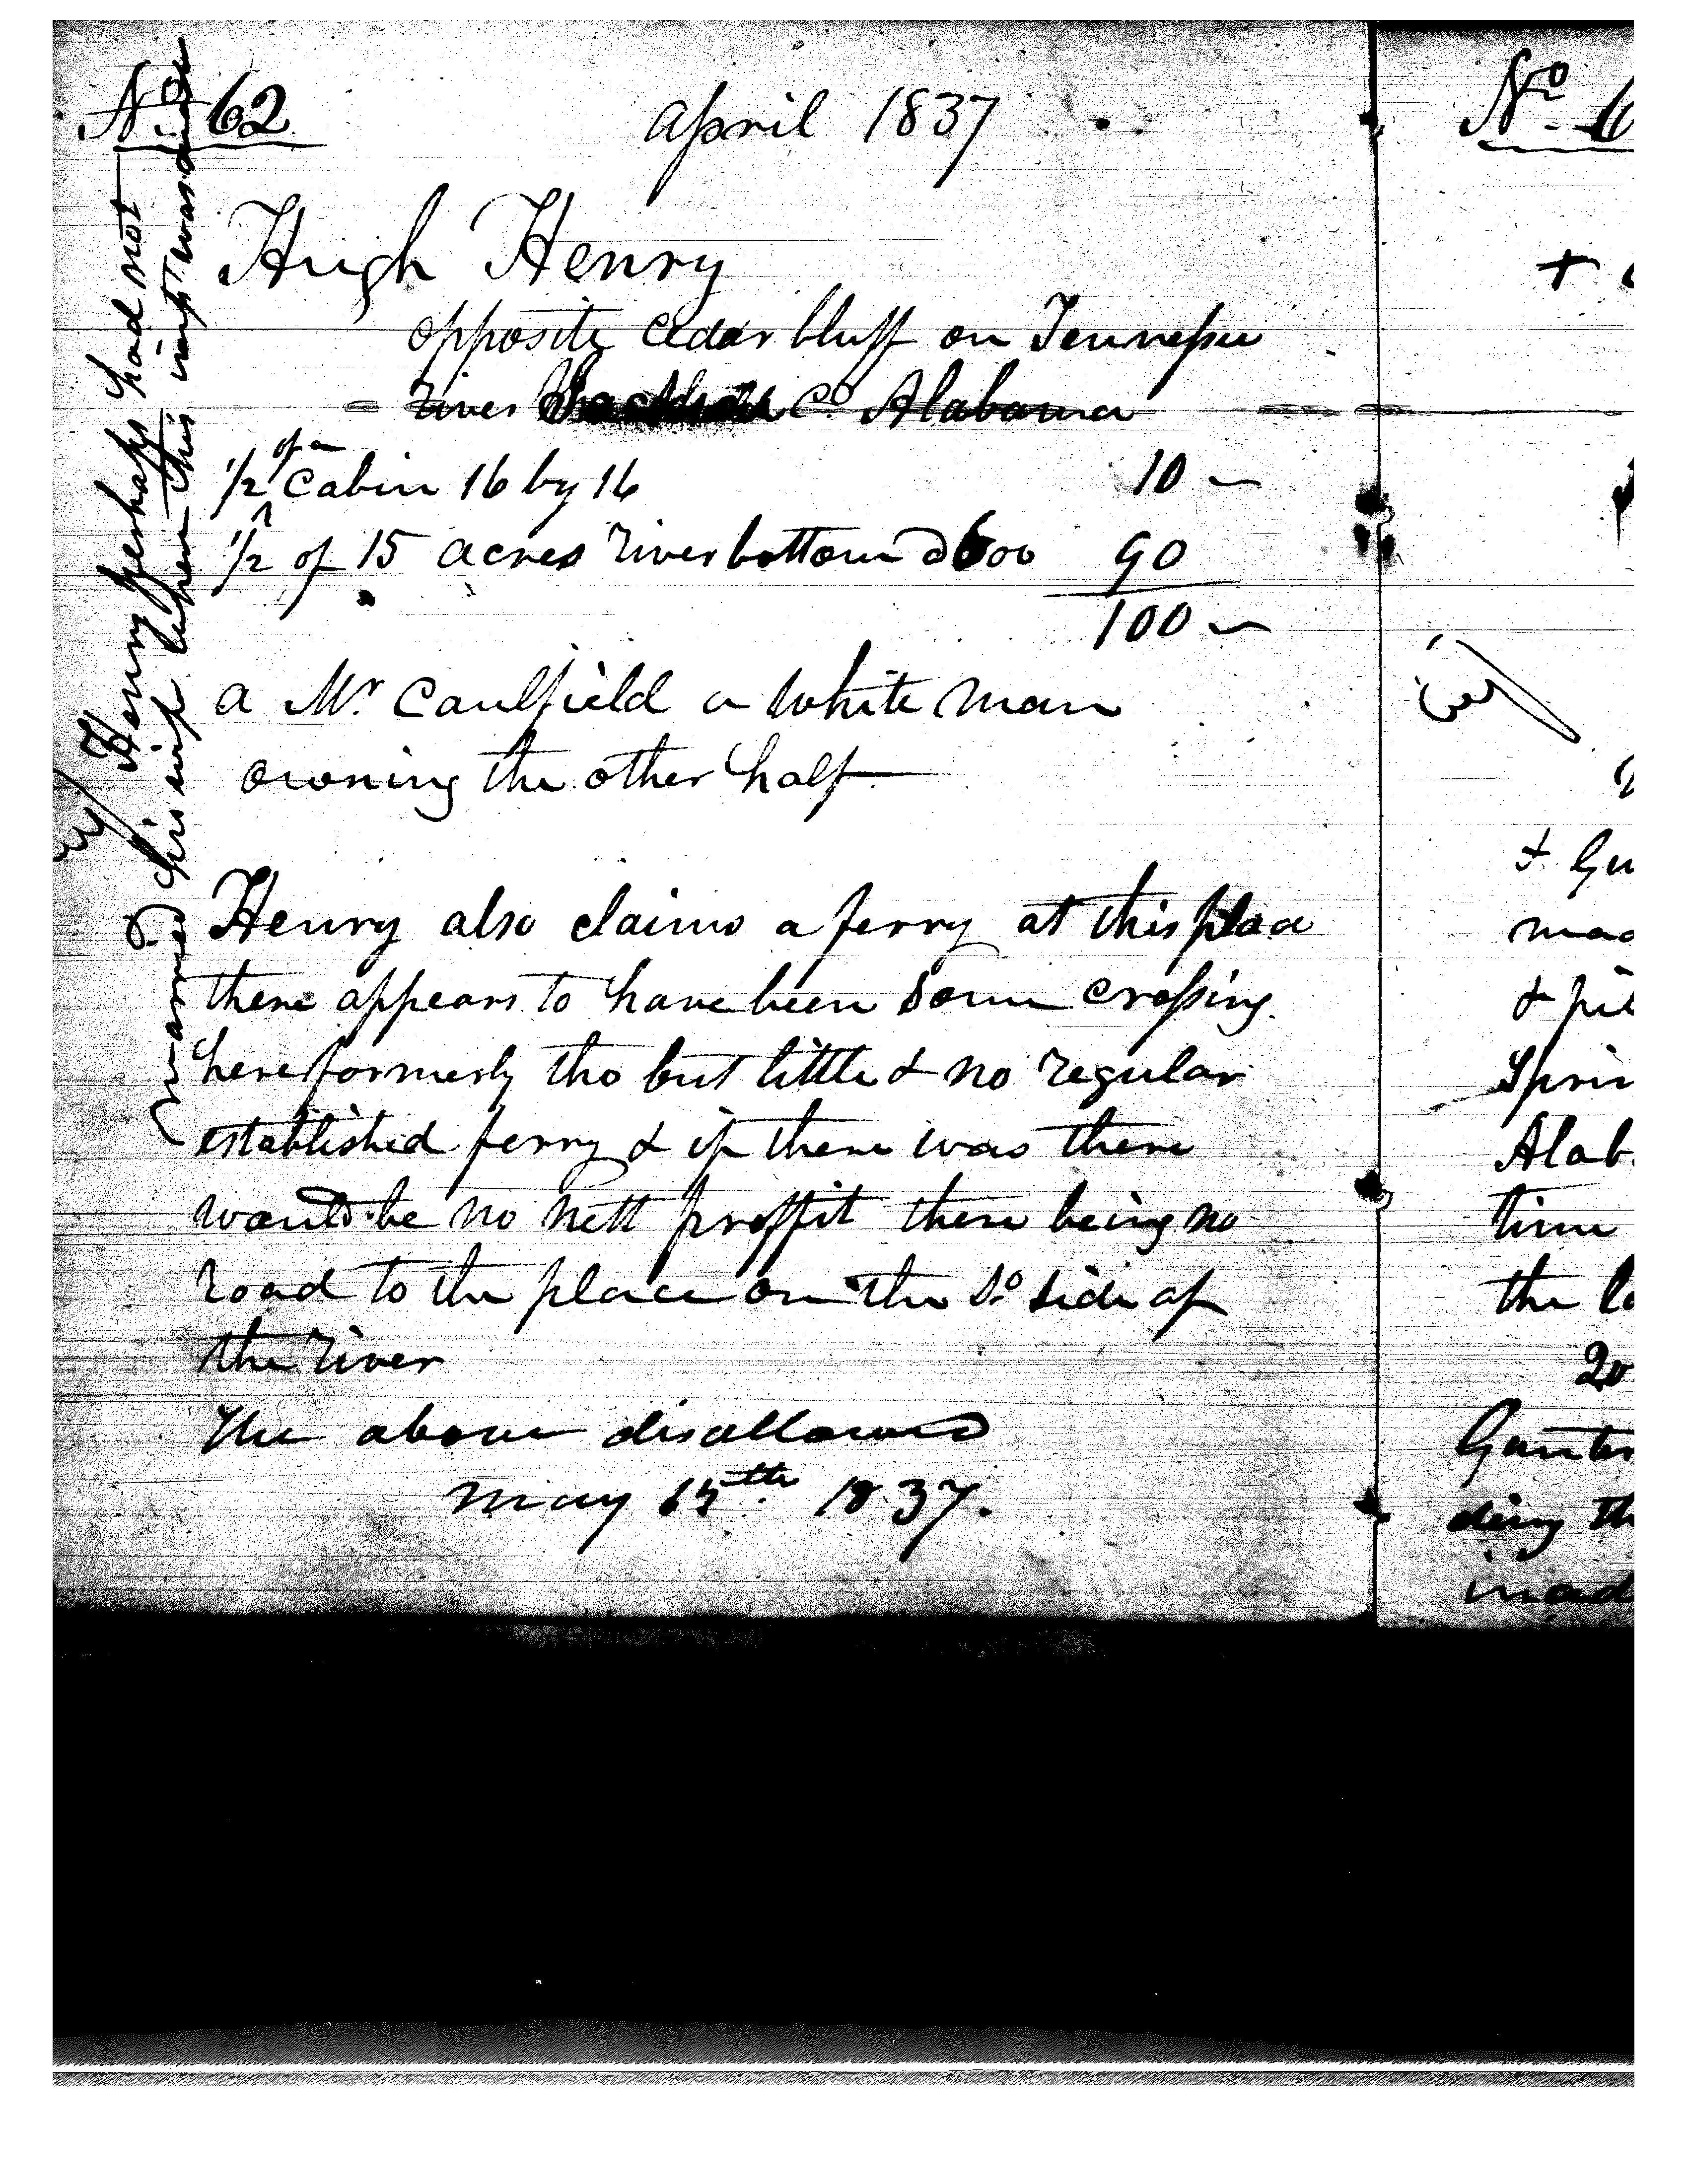 No 62
April 1837
Hugh Henry
opposite Cedar bluff on Tennessee
River Co Alabama
1/2 of a Cabin 16 by 16 10
1/2 of 15 acres River bottom 90
100
a Mr Caulfield a White Man
owning the other half
Henry also claims a ferry at this place
there appears to have been Some Crossing
here formerly tho but little & no regular
established ferry & if there was there
would be no nett proffit there being no
road to the place on the So Side of
the River
The above disallowed
May 15th 1837.
Henry perhaps had not
married his wife when this impt was made
No
+
+ Gu
mad
& pie
Sprin
Alab.
time
the lo
20
Gunter
ding th
inad